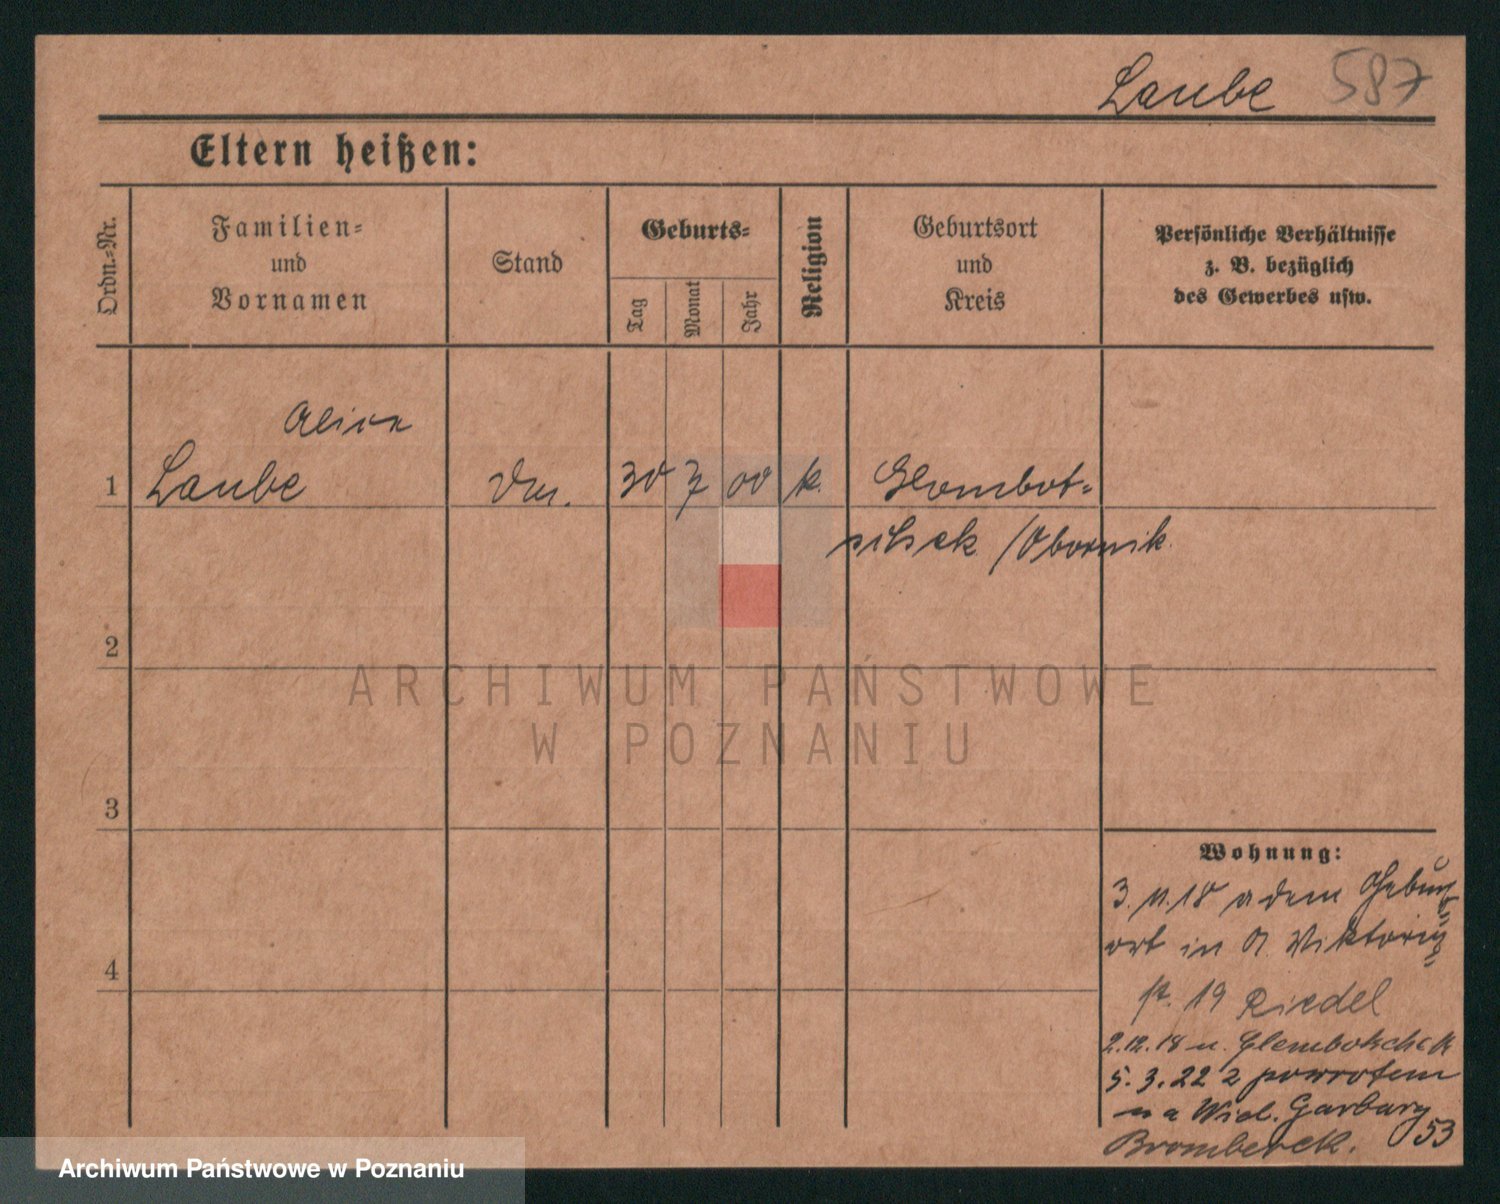 Laube 587
Eltern heißen:
Ordn.-Nr.
Familien-
und
Vornamen
Stand
Geburts-
Tag
Monat
Jahr
Religion
Geburtsort
und
Kreis
Persönliche Verhältnisse
z. B. bezüglich
des Gewerbes usw.
1
Laube
30 7 00 k.
Glombot-
schek /Obornik
2
ARCHIWUM PAŃSTWOWE
W POZNANIU
3
4
Wohnung:
3. 11. 18 a dem
ort in Viktoria
st. 19 Riedel
2.12.18 n.
5. 3. 22 z powrotem
na Wiel. Garbary
53
Archiwum Państwowe w Poznaniu